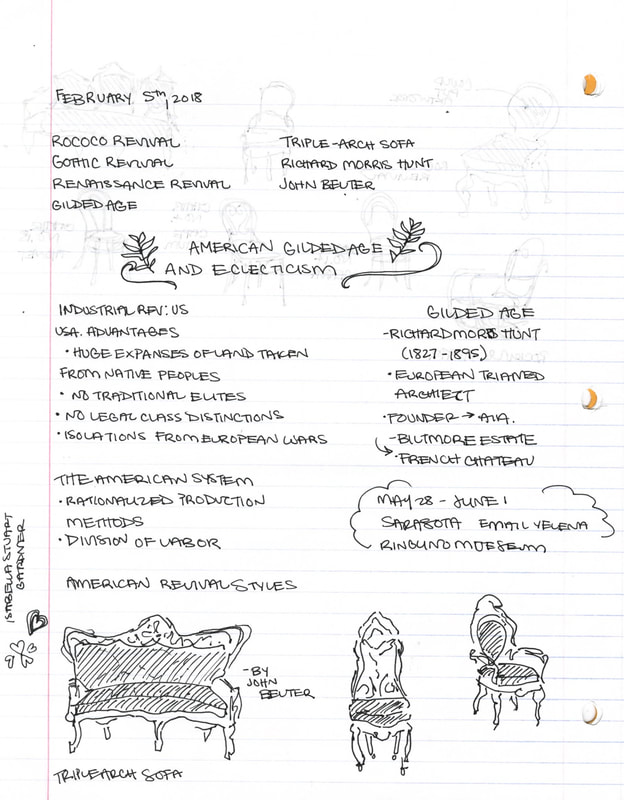 FEBRUARY 5TH, 2018
ROCOCO REVIVAL
GOTHIC REVIVAL
RENAISSANCE REVIVAL
GILDED AGE
TRIPLE-ARCH SOFA
RICHARD MORRIS HUNT
JOHN BELTER
AMERICAN GILDED AGE
AND ECLECTICISM
INDUSTRIAL REV: US
USA. ADVANTAGES
• HUGE EXPANSES OF LAND TAKEN
FROM NATIVE PEOPLES
• NO TRADITIONAL ELITES
• NO LEGAL CLASS DISTINCTIONS
• ISOLATIONS FROM EUROPEAN WARS
THE AMERICAN SYSTEM
• RATIONALIZED PRODUCTION
METHODS
• DIVISION OF LABOR
GILDED AGE
-RICHARD MORRIS HUNT
(1827-1895)
• EUROPEAN TRIANED
ARCHIECT
• FOUNDER → AIA.
-BILTMORE ESTATE
• FRENCH CHATEAU
MAY 28 - JUNE 1
SARASOTA EMAIL YELENA
RINGLING MUESEUM
ISABELLA STUART
GARDNER
AMERICAN REVIVAL STYLES
-BY
JOHN
BELTER
TRIPLE ARCH SOFA